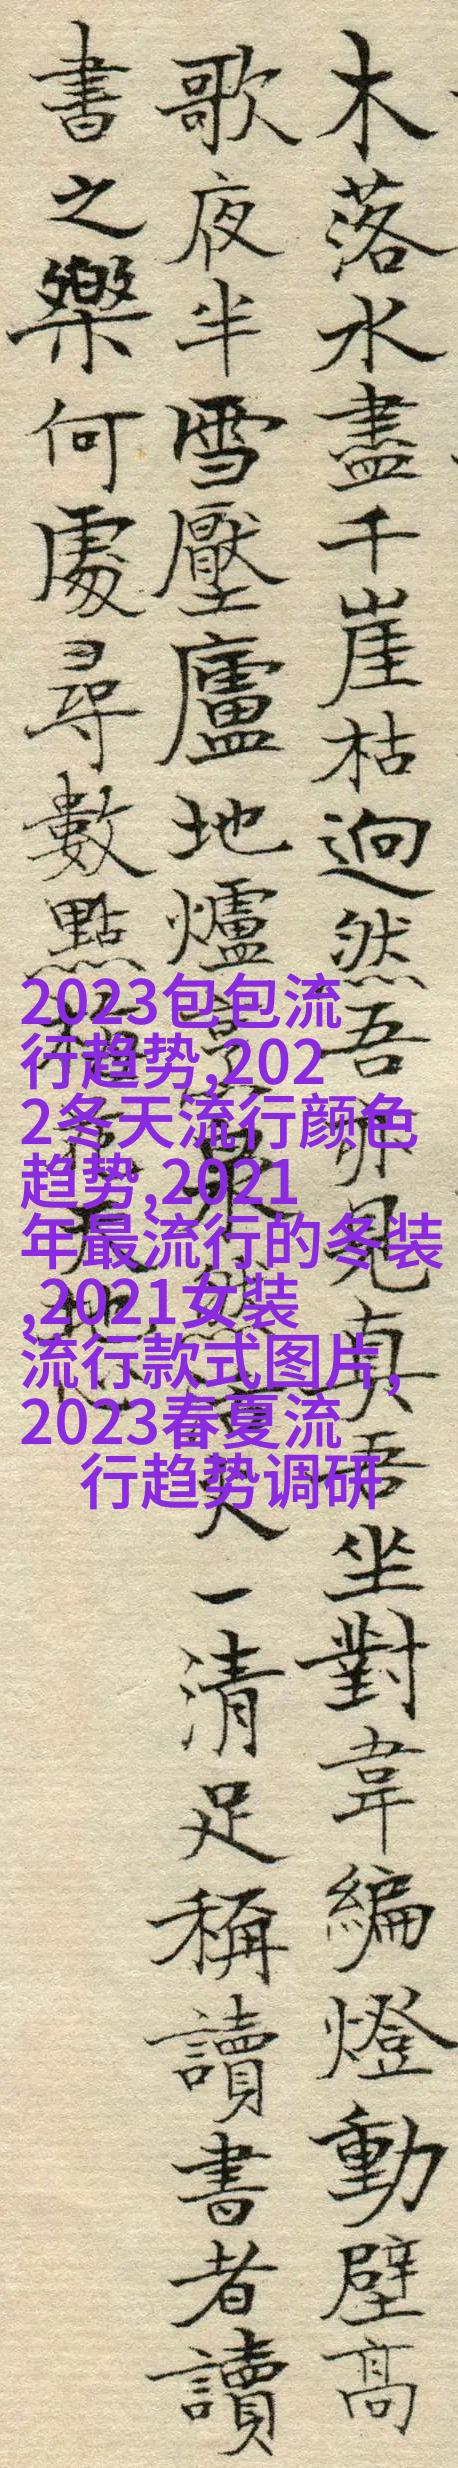 木落水盡千崖枯迥然吾亦見真吾坐對韋編燈動壁高
歌夜半雪壓廬地爐火一清足稱讀書者讀
書之樂何處尋數點梅花天地心
2023包包流
行趋势,202
2冬天流行颜色
趋势,2021
年最流行的冬装
,2021女装
流行款式图片,
2023春夏流
行趋势调研